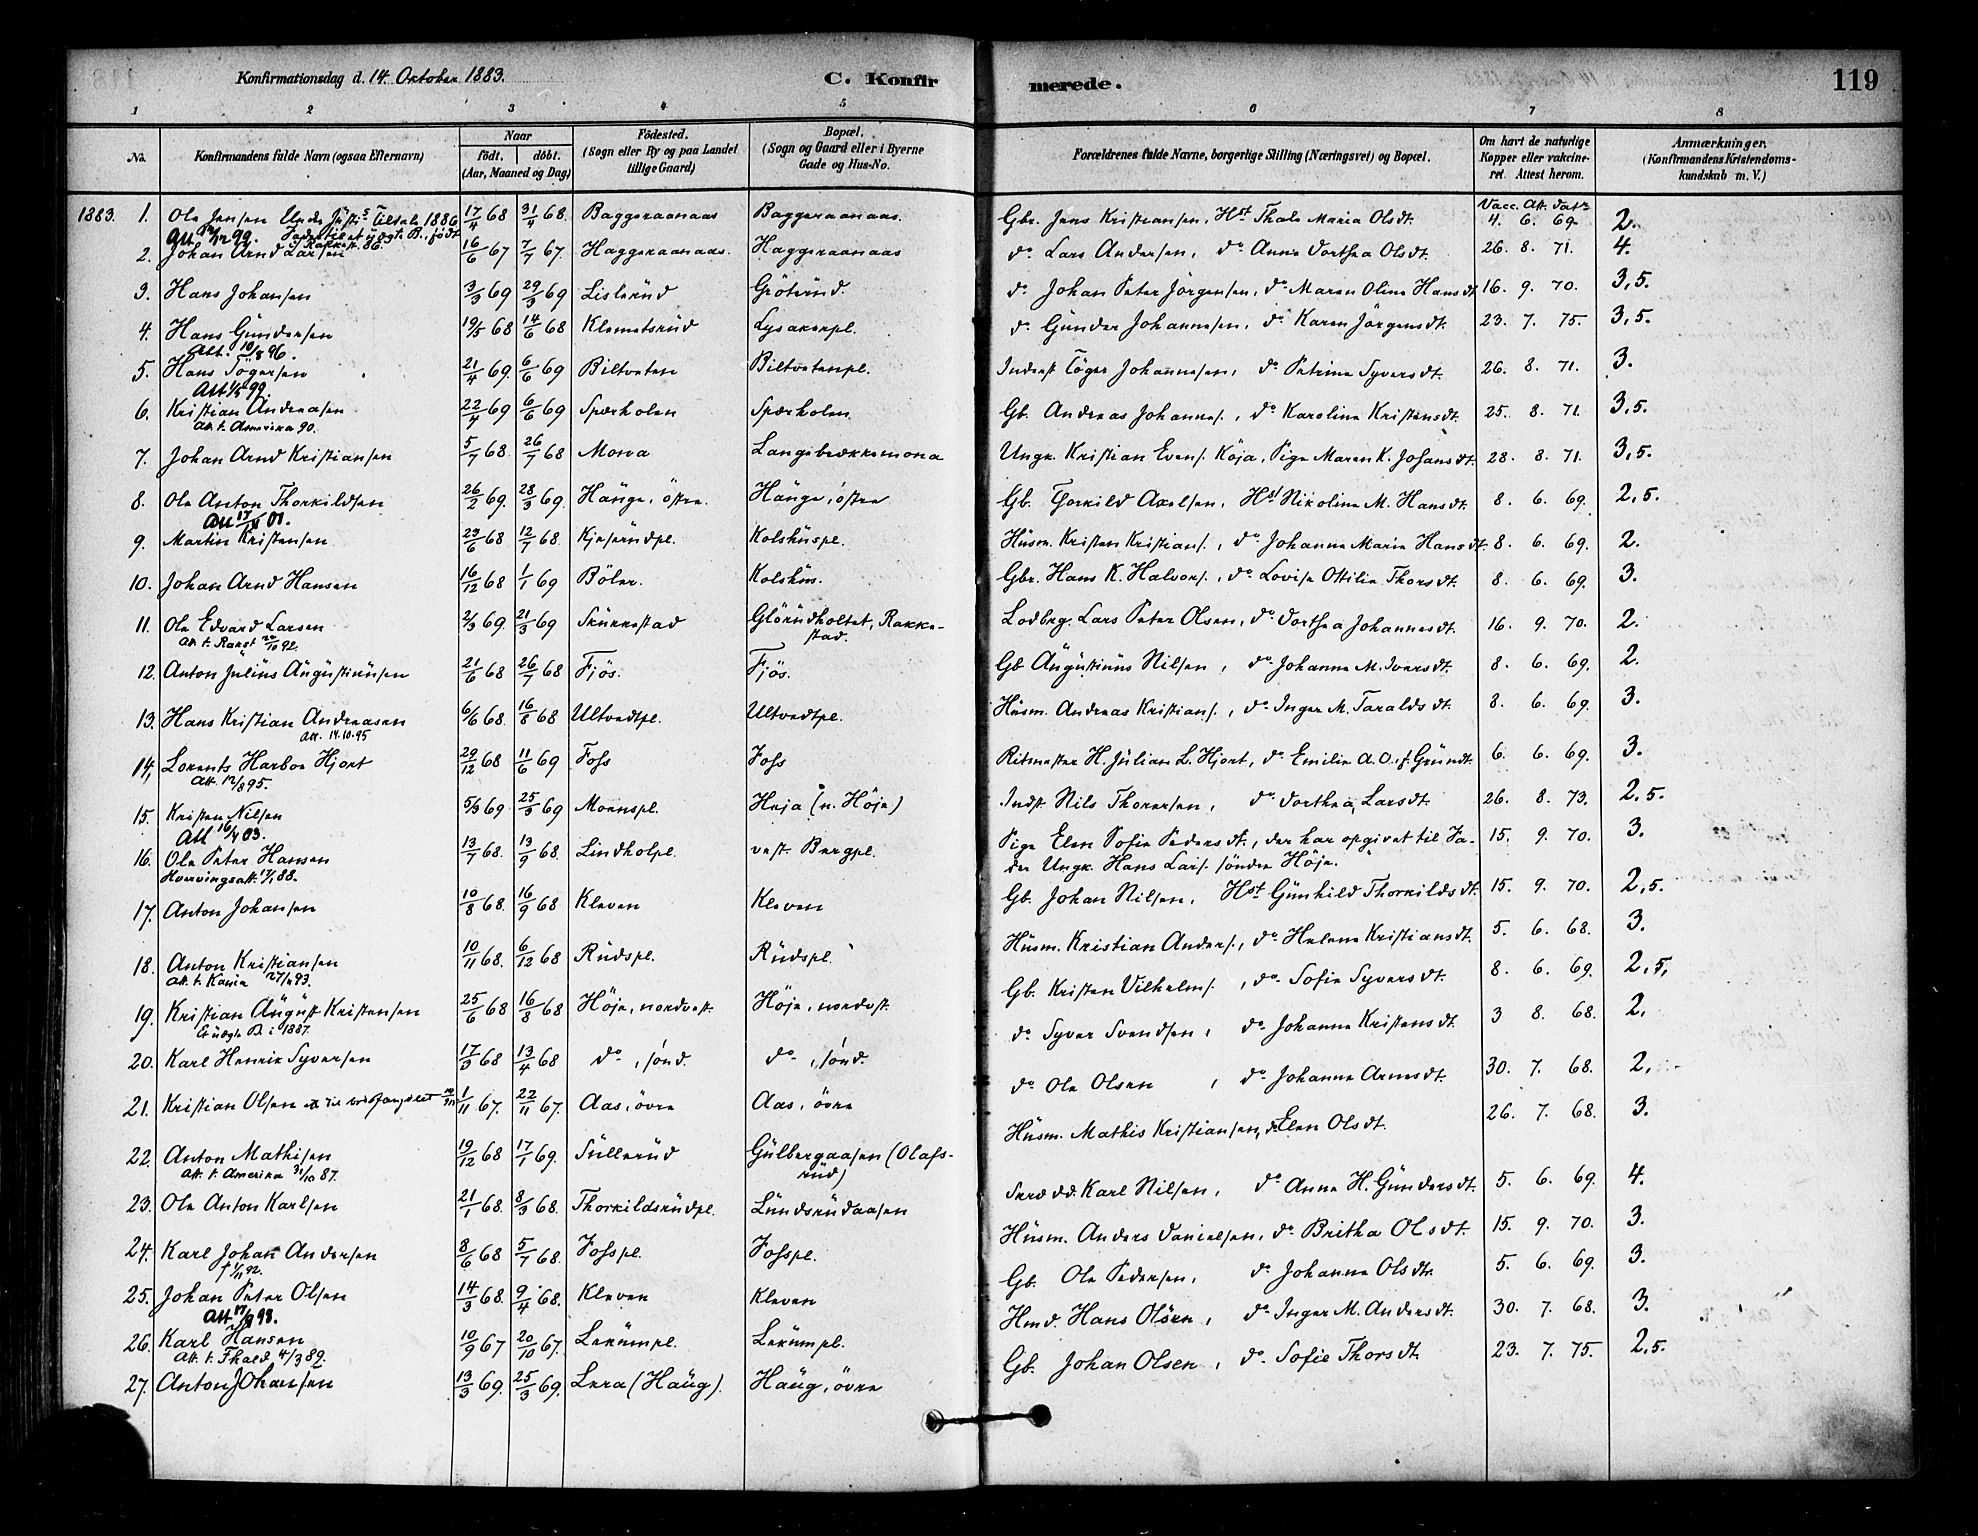 Konfirmationsdag d. 14. Oktober 1883.
C. Konfir
merede.
119
1 2 3 4 5 6 7 8
No.
Konfirmandens fulde Navn (ogsaa Efternavn)
Naar
födt. döbt.
(Aar, Maaned og Dag)
Födested.
(Sogn eller By og paa Landet
tillige Gaard)
Bopæl.
(Sogn og Gaard eller i Byerne
Gade og Hus-No.
Forældrenes fulde Navne, borgerlige Stilling (Næringsvei) og Bopæl.
Om havt de naturlige
Kopper eller vakcine-
ret. Attest herom.
Anmærkninger.
(Konfirmandens Kristendoms-
kundskab m. V.)
Vacc. Att. dat.
1883. 1. Ole Jensen 17/4 68 31/4 68. Baggeraanaas Baggeraanaas. Gbr. Jens Kristiansen, Hst Thale Maria Olsdt. 4. 6. 69. 2.
2. Johan Arnd Larsen 16/6 67 7/7 67. Haggeraanaas. Haggeraanaas do Lars Andersen, do Anne Dorthea Olsdt. 26. 8. 71. 4.
3. Hans Johansen 3/3 69 29/3 69 Lislerud Gröterud. do Johan Peter Jörgensen, do Maren Oline Hansdt. 16. 9. 70. 3,5.
4. Hans Gundersen 19/5 68 14/6 68 Klemetsrud Lysakerpl. do Gunder Johannesen, do Karen Jörgensdt. 23. 7. 75. 3,5.
Att. 10/8 96.
5. Hans Tögersen 21/4 69. 6/6 69 Biltveten Biltvetenpl. Inderst Töger Johannesen, do Petrine Syversdt. 26. 8. 71. 3.
Att 1/5 99.
6. Kristian Andreasen 22/4 69 6/6 69 Spærholen Spærholen. Gb. Andreas Johannes., do Karoline Kristensdt. 25. 8. 71. 3,5.
Att. t. Amerika 90.
7. Johan Arnd Kristiansen 5/7 68. 26/7 68 Mona Langebrækkemona Ungk. Kristian Evens. Höja, Pige Maren K. Johansdt. 28. 8. 71. 3,5.
8. Ole Anton Thorkildsen 26/2 69. 28/3 69. Hauge, östre. Hauge, östre Gb. Thorkild Axelsen, Hst Nikoline M. Hansdt. 8. 6. 69. 2,5.
9. Martin Kristensen 23/6 68 12/7 68. Kjeserudpl. Kolshuspl. Husm. Kristen Kristians., do Johanne Maria Hansdt. 8. 6. 69. 2.
10. Johan Arnd Hansen 16/12 68 1/1 69 Böler. Kolshus. Gbr. Hans K. Halvors., do Lovise Ottilie Thorsdt. 8. 6. 69. 3.
11. Ole Edvard Larsen 2/3 69. 21/3 69 Skukkestad Glörudholtet, Rakke- Lodbrg. Lars Peter Olsen, do Dorthea Johannesdt. 16. 9. 70. 2.
Att. t. Rakst 20/10 92. stad.
12. Anton Julius Augustinusen 21/6 68 26/7 68 Fjös. Fjös. Gb Augustinus Nilsen, do Johanne M. Iversdt. 8. 6. 69. 2.
13. Hans Kristian Andreasen 6/6 68. 16/8 68 Ultvedtpl. Ultvedtpl. Husm. Andreas Kristians., do Inger M. Taraldsdt. 8. 6. 69. 3.
Att. 14.10.95
14, Lorents Harboe Hjort 29/12 68 11/6 69 Foss Foss Ritmester H. Julian L. Hjort, do Emilie A. O. f. Grundt. 6. 6. 69. 3.
Att. 12/8 95.
15. Kristen Nilsen 5/3 69 25/3 69 Moenspl. Heja (n. Höje) Indst. Nils Thoresen, do Dorthea Larsdt. 26. 8. 73. 2,5.
Att 16/4 03.
16. Ole Peter Hansen 13/7 68. 13/9 68. Lindholpl. vest. Bergpl. Pige Elen Sofie Pedersdt., der har opgivet til Fa- 15. 9. 70. 3.
Hvervingsatt. 17/1 88. der Ungk. Hans Lars. söndre Höje.
17. Anton Johansen 10/8 68. 16/9 68 Kleven Kleven Gb. Johan Nilsen, Hst Gunhild Thorkildsdt. 15. 9. 70. 2,5.
18. Anton Kristiansen 10/11 68. 6/12 68 Rudspl. Rudspl. Husm. Kristian Anders., do Helene Kristiansdt. 5. 6. 68. 3.
19. Kristian August Kristensen 25/6 68 16/8 68 Höje, nordvest. Höje, nordvest. Gb. Kristen Vilhelms., do Sofie Syversdt. 8. 6. 69. 2,5,
Et uægte B. i 1887.
20. Karl Henrik Syversen 17/3 68 13/4 68 do, sönd. do, sönd. do Syver Svendsen, do Johanne Kristensdt. 3 8. 68. 2,
21. Kristian Olsen 1/11 67. 22/11 67. Aas, övre Aas, övre do Ole Olsen, do Johanne Arnesdt. 30. 7. 68. 2,
22. Anton Mathisen 19/12 68 17/1 69. Sullerud Gulbergaasen (Olafs- Husm. Mathis Kristiansen, do Elen Olsdt. 26. 7. 68. 3.
Att. t. Amerika 31/10 87. rud)
23. Ole Anton Karlsen 21/1 68. 8/3 68. Thorkildsrudpl. Lundsrudaasen Karl Nilsen, do Anne H. Gundersdt. 5. 6. 69. 4.
24. Karl Johan Andersen 8/6 68 5/7 68. Fosspl. Fosspl. Husm. Anders Danielsen, do Britha Olsdt. 15. 9. 70. 3.
† 1/11 92.
25. Johan Peter Olsen 14/3 68. 9/4 68. Kleven Kleven Gb. Ole Pedersen, do Johanne Olsdtr. 5. 6. 69. 3.
26. Karl Hansen 10/9 67 20/10 67. Lekumpl. Lekumpl. Hmd. Hans Olsen, do Inger M. Andersdt. 30. 7. 68. 3.
Att. t. Fhald 4/3 89.
27. Anton Johansen 13/3 69. 25/3 69. Lera (Haug). Haug, övre Gb. Johan Olsen, do Sofie Thorsdt. 23. 7. 75. 2,5.